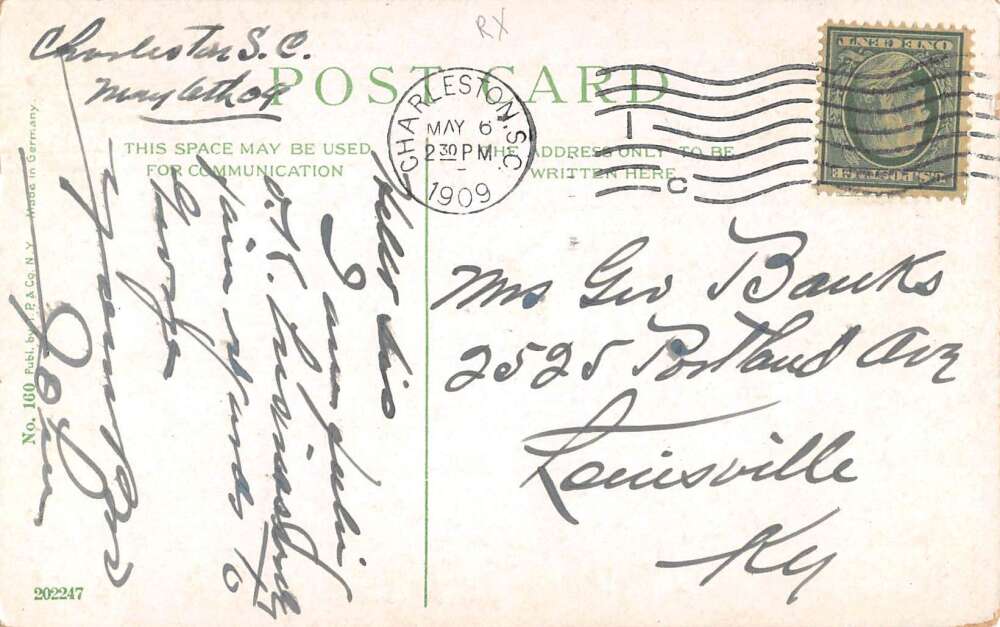 RX
Charleston S.C.
May 6th 09
POST CARD
THIS SPACE MAY BE USED
FOR COMMUNICATION
THE ADDRESS ONLY TO BE
WRITTEN HERE
CHARLESTON, S.C.
MAY 6
2 30 PM
1909
C
ONE CENT
Hello Sis
I am feeling
O.K.
to
George
Your Bro
John
Mrs Geo Banks
2525 Portland Ave
Louisville
Ky
No. 160 Publ. by I. P. & Co. N. Y. Made in Germany
202247